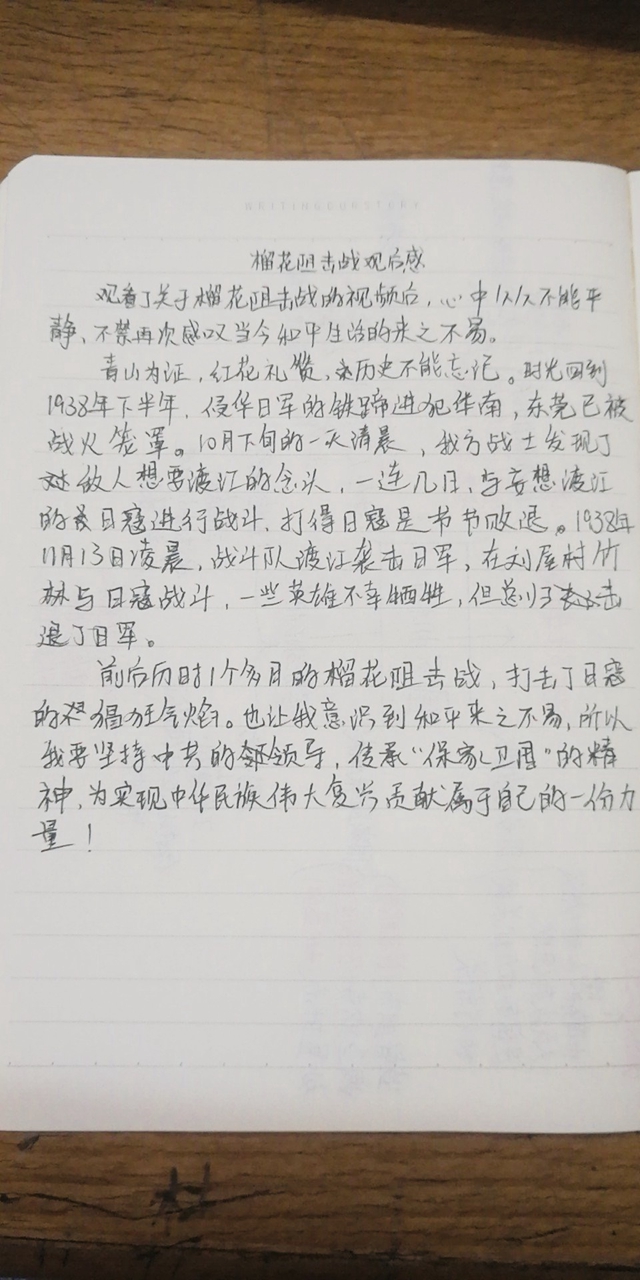 榴花阻击战观后感
观看了关于榴花阻击战的视频后，心中久久不能平
静，不禁再次感叹当今和平生活的来之不易。
青山为证，红花礼赞，历史不能忘记。时光回到
1938年下半年，侵华日军的铁蹄进犯华南，东莞已被
战火笼罩。10月下旬的一天清晨，我方战士发现了
敌人想要渡江的念头，一连几日，与妄想渡江
的日寇进行战斗，打得日寇是节节败退。1938年
11月13日凌晨，战斗队渡江袭击日军，在刘屋村竹
林与日寇战斗，一些英雄不幸牺牲，但总归击
退了日军。
前后历时1个多月的榴花阻击战，打击了日寇
的猖狂气焰。也让我意识到和平来之不易，所以
我要坚持中共的领导，传承“保家卫国”的精
神，为实现中华民族伟大复兴贡献属于自己的一份力
量！